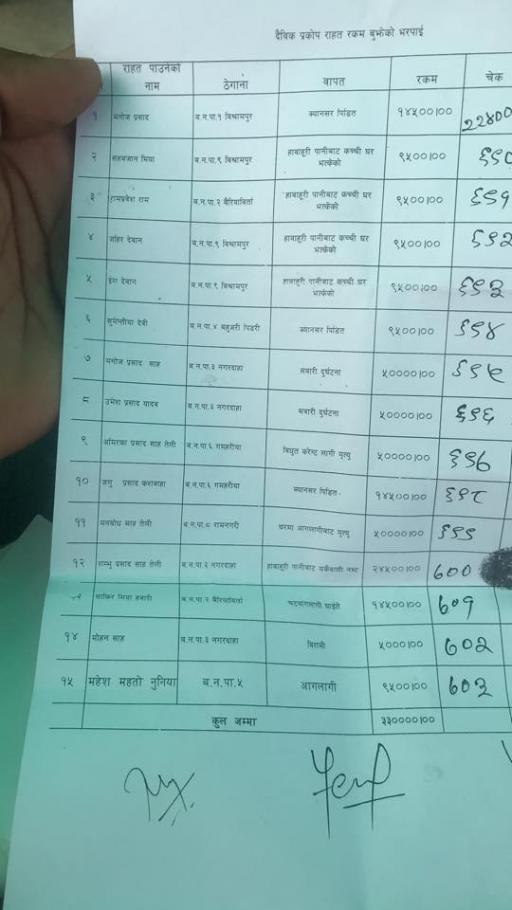 दैविक प्रकोप राहत रकम बुझेको भरपाई
राहत पाउनेको नाम ठेगाना बापत रकम चेक
१ मनोज प्रसाद ब.न.पा.१ बिश्रामपुर क्यानसर पिडित १४५००|०० 22400
२ सहबजान मिया ब.न.पा.९ बिश्रामपुर हावाहुरी पानीबाट कच्ची घर भत्केको ९५००|०० ६९०
३ रामप्रवेश राम ब.न.पा.२ बैरियाबिर्ता हावाहुरी पानीबाट कच्ची घर भत्केको ९५००|०० ६९१
४ जाहिर देवान ब.न.पा.९ बिश्रामपुर हावाहुरी पानीबाट कच्ची घर भत्केको ९५००|०० ६९२
५ ईश देवान ब.न.पा.९ बिश्रामपुर हावाहुरी पानीबाट कच्ची घर भत्केको ९५००|०० ६९३
६ सुमन्तीया देवी ब.न.पा.४ बहुअरी पिडरी क्यानसर पिडित ९५००|०० ६९४
७ मनोज प्रसाद साह ब.न.पा.३ नगरदाहा सवारी दुर्घटना ५००००|०० ६९५
८ उमेश प्रसाद यादव ब.न.पा.३ नगरदाहा सवारी दुर्घटना ५००००|०० ६९६
९ अमिरका प्रसाद साह तेली ब.न.पा.६ गम्हरीया बिधुत करेन्ट लागी मृत्यु ५००००|०० ६९७
१० जगु प्रसाद कलवाहा ब.न.पा.६ गम्हरीया क्यानसर पिडित १४५००|०० ६९८
११ मनबोध साह तेली ब.न.पा.८ रामनगरी घरमा आगलागीबाट मृत्यु ५००००|०० ६९९
१२ शम्भु प्रसाद साह तेली ब.न.पा.३ नगरदाहा हावाहुरी पानीबाट २४५००|०० ७००
साकिर मिया हवारी ब.न.पा.२ बैरियाबिर्ता घाईते १४५००|०० ७०१
१४ मोहन साह ब.न.पा.३ नगरदाहा बिरामी ५०००|०० ७०२
१५ महेश महतो नुनिया ब.न.पा.५ आगलागी ९५००|०० ७०३
कुल जम्मा ३३००००|००